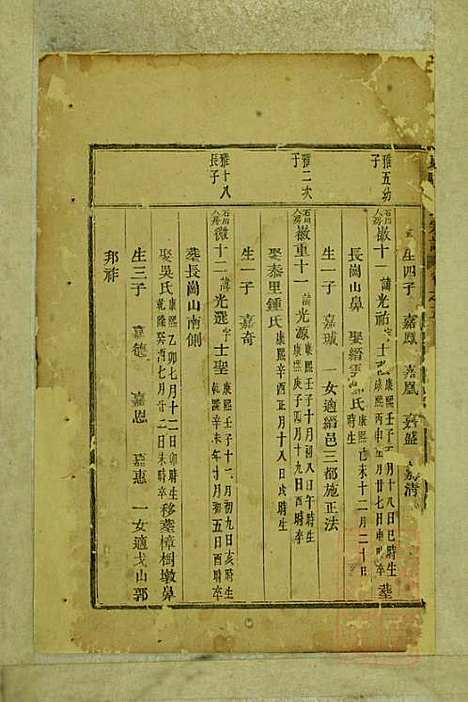 生四子 嘉鳳 嘉凰 嘉盛 嘉清
雅五幼子
徽十 諱光祐 字士 康熙壬子 月十八日巳時生 康熙丙申 月廿七日申時卒 葬
長崗山鼻 娶縉雲 氏 康熙 時生 未十二月二十日
生一子 嘉珹 一女適縉邑三都施正法
雅二次子
徽重十一 諱光源 康熙壬子十月初八日午時生 康熙庚子四月十九日酉時卒
娶泰里鍾氏 康熙辛酉正月十八日戌時生
生一子 嘉奇
雅十八長子
徽十二 諱光選 字士聖 康熙壬子十一月初九日亥時生 乾隆辛未年十月初五日酉時卒
葬長崗山南側
娶吳氏 康熙乙卯七月十二日卯時生 乾隆癸酉七月廿二日未時卒 移葬樟樹墩鼻
生三子 嘉德 嘉恩 嘉惠 一女適戈山郭
邦祚